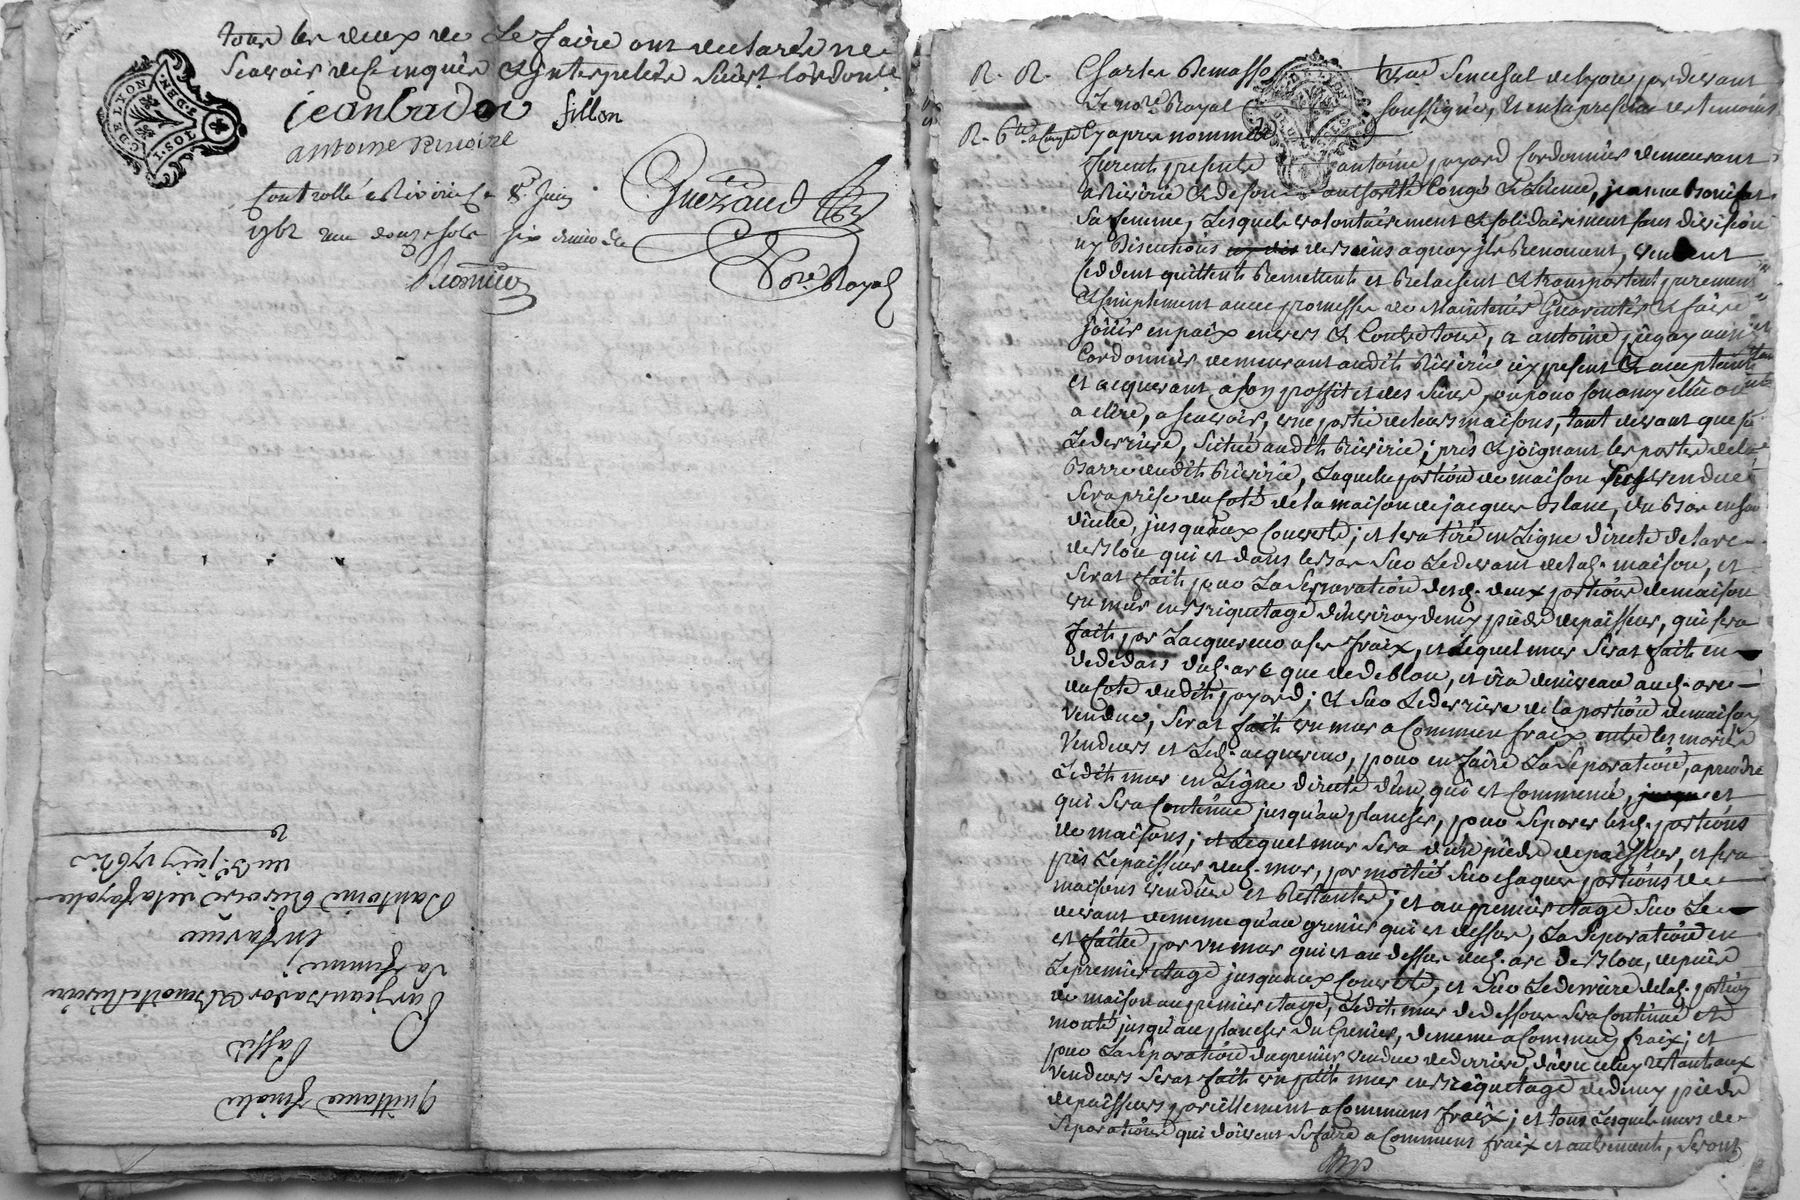 tous les deux de Le faire ont declarés ne
Scavoir de ce enquis et interpellés suivt l'ordonce
jean badoi fillon
antoine Rivoire
Controllé a Riverie Ce 8e Juin
1762 Reçu douze sols six deniers
Guerraud
Nore Royal
G. DE LYON
2. DEN.
1. SOL
quittance finale
Passée
Par jean badoi et Benoitte
Sa femme
en faveur
D'antoine Rivoire
du 3e juin 1762
R. R.
Charles Remasso
Senechal de Lyon pardevant
Le nore Royal soussigné, Et en la presence des temoins
Cy apres nommés
furent presents antoine joyard Cordonnier demeurant
a Riverie et de son authorité Congé et Licence, jeanne
sa femme, Lesquels volontairement et solidairement sans division
ny discutions de biens a quoy ils Renoncent, vendent
Ceddent quittent Remettent et Relaisent et transportent purement
et simplement avec promesse de Maintenir Guarentir et faire
jouir en paix envers et Contre tous, a antoine aussi
Cordonnier demeurant audit Riverie icy present et acceptant
et acquerant a son proffit et des siens, ou pour son amy elu ou
a elire, a scavoir, une portie de leurs maisons, tant devant que
Lederriere, situé audit Riverie; près et joignant les portes de la
Barre dudit Riverie, Laquelle portion de maison vendue
Sera prise du Coté de la maison de jacques Blanc, du Bas en
jusqu'aux Couverts; et sera tiré en Ligne directe de l'arc
de Blou qui est dans le bas Sur Ledevant de lad. maison, et
Serat fait pour La Separation desd. deux portions de maison
un mur en Briquetage d'environ demy pied depaisseur, qui sera
fait par Lacquereur a ses fraix, et Lequel mur Serat fait en
dedans dud. arc que de Blou, et ira de niveau aud. arc
du Coté dudit joyard; et Sur Lederriere de la portion de maison
vendue, Serat fait un mur a Commun fraix entre les mariés
Vendeurs et Led. acquereur, pour en faire La Separation, a prendre
Ledit mur en Ligne directe d'un, qui est Commencé, et
qui Sera Continué jusqu'au plancher, pour Separer lesd. portions
de maisons; et Lequel mur Sera d'un pied depaisseur, et sera
pris Lepaisseur dud. mur, par moitié Sur Chaque portions de
maisons vendue et Restante; et au premier etage Sur Le
devant de meme qu'au grenier qui est dessus, La Separation en
est faitte par un mur qui est au dessus dud. arc de Blou, depuis
Le premier etage jusqu'aux Couverts, et Sur Lederriere de lad. portion
de maison au premier etage, Ledit mur de dessous Sera Continué et
monté jusqu'au plancher du Grenier, de meme a Commun fraix; et
pour La Separation du grenier vendue de derriere, d'avec celuy restant aux
vendeurs Serat fait un petit mur en Briquetage de demy pied
depaisseur, pareillement a Commun fraix; et tous Lesquels murs de
Separations qui doivent Se faire a Commun fraix et autrement, Seront